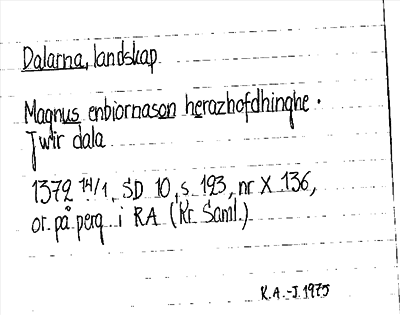 Dalarna, landskap
Magnus enbiornason herazhofdhinghe .
Jwir dala
1372 14/1, SD 10, s. 193, nr X 136,
or. på perg. i RA (Kr. Saml.)
K.A.-J. 1975